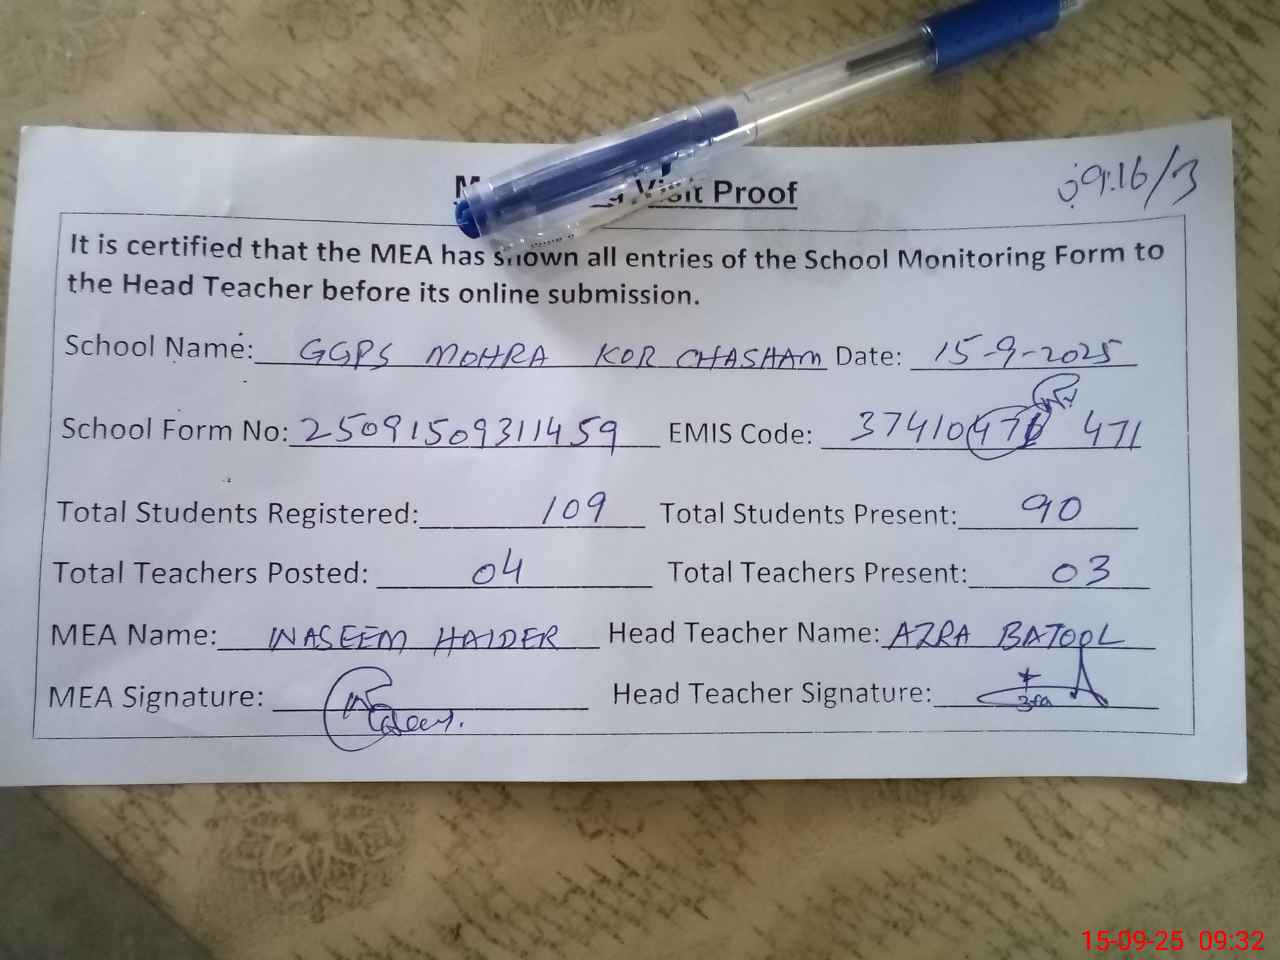 Visit Proof
09:16/3
It is certified that the MEA has shown all entries of the School Monitoring Form to
the Head Teacher before its online submission.
School Name: GGPS MOHRA KOR CHASHAM Date: 15-9-2025
School Form No: 25091509311459 EMIS Code: 37410476 471
Total Students Registered: 109 Total Students Present: 90
Total Teachers Posted: 04 Total Teachers Present: 03
MEA Name: WASEEM HAIDER Head Teacher Name: AZRA BATOOL
MEA Signature: Head Teacher Signature:
15-09-25 09:32